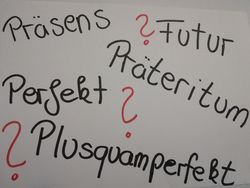 Präsens ? Futur
Präteritum
Perfekt ?
? Plusquamperfekt